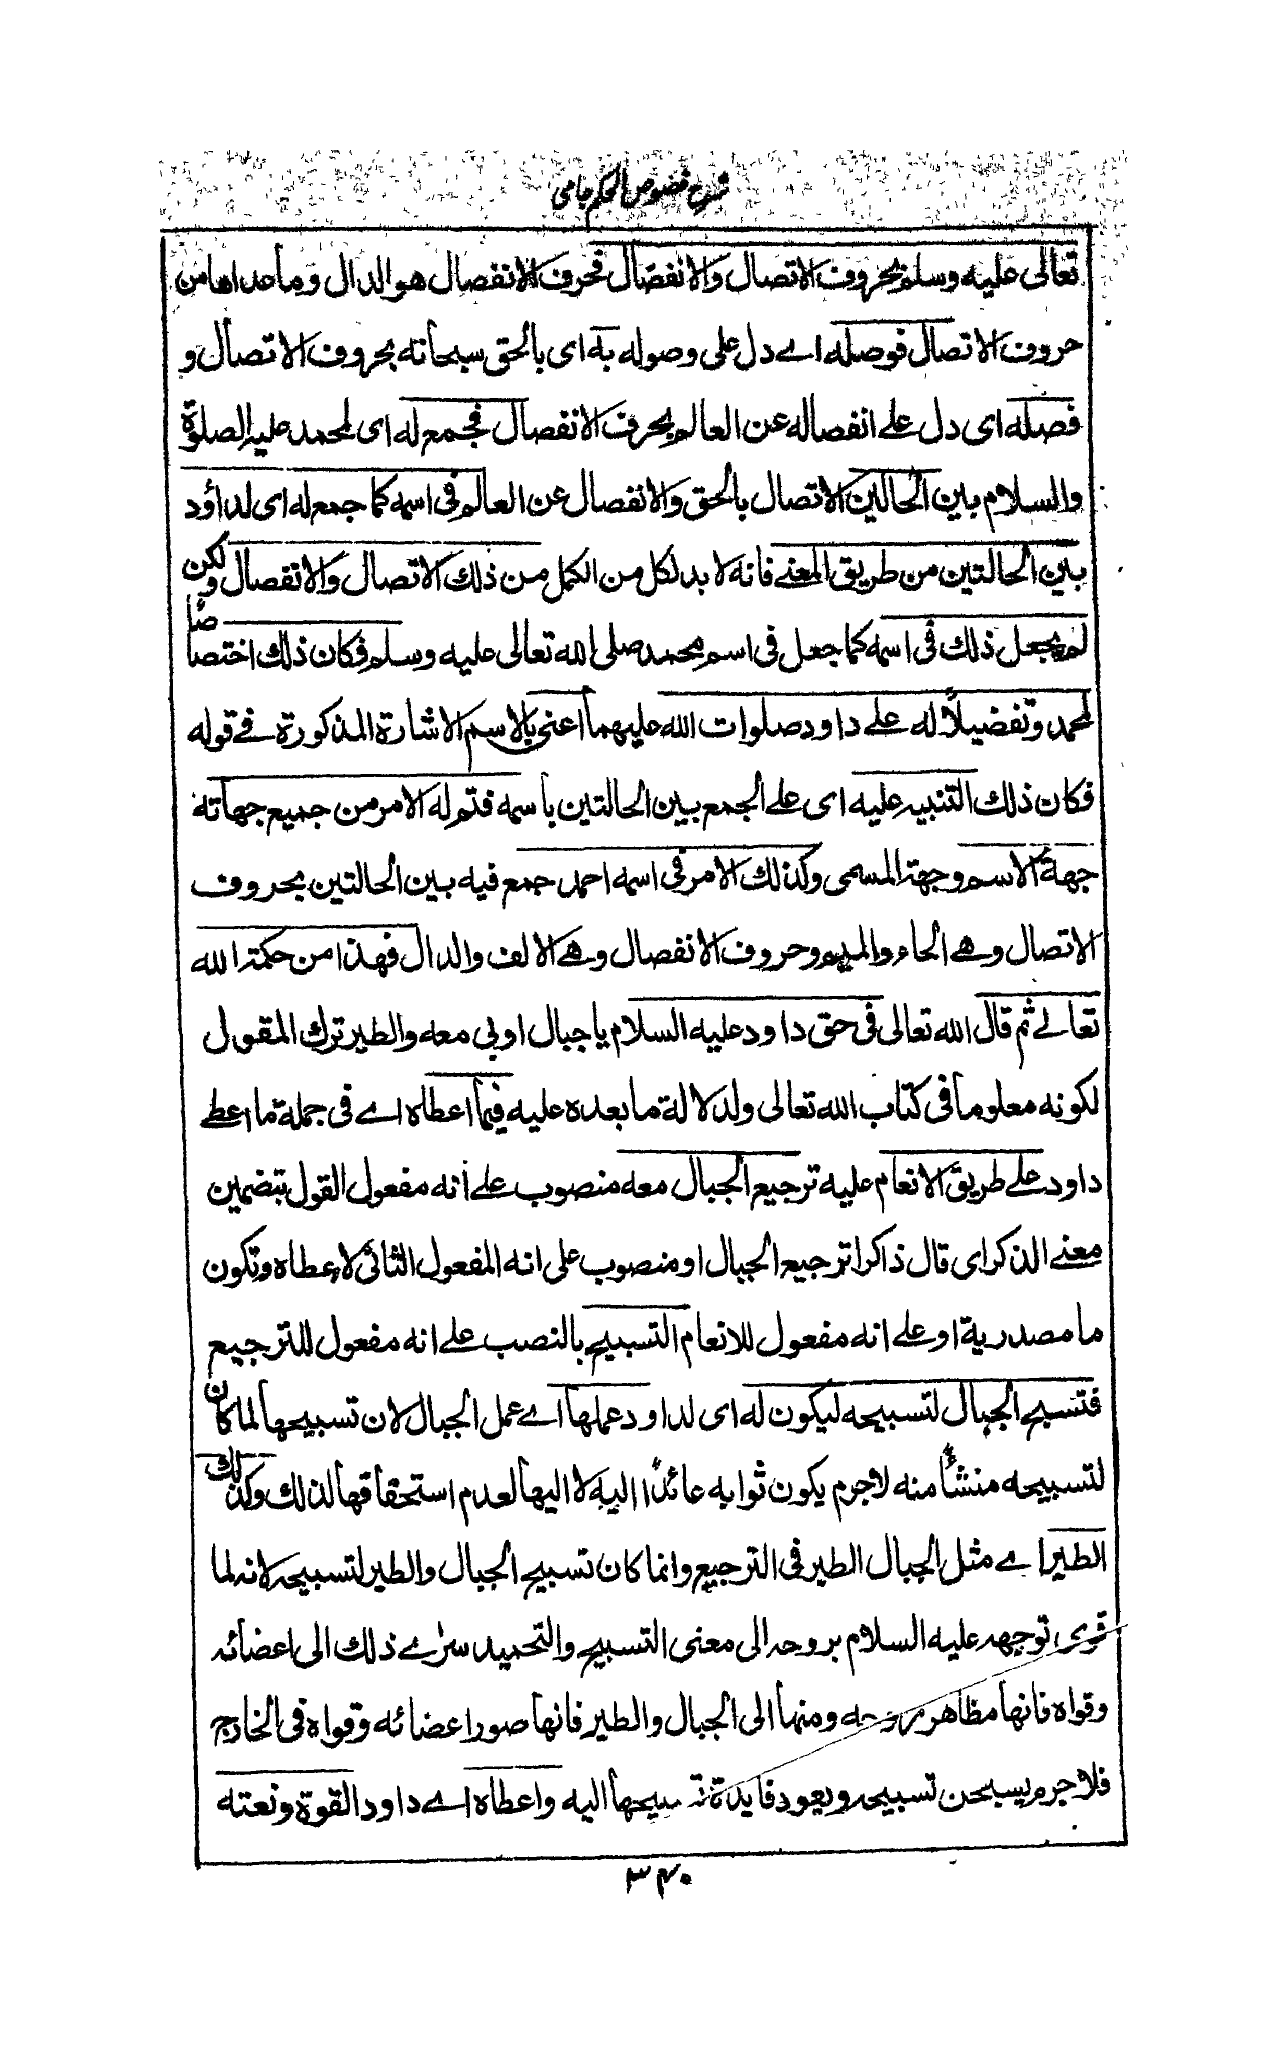 شرح فصوص الحکم جامی
تعالى عليه وسلم بحروف الاتصال والانفصال فحرف الانفصال هو الدال وما عداها من
حروف الاتصال فوصله اے دل على وصوله به اى بالحق سبحانه بحروف الاتصال و
فصله اى دل علے انفصاله عن العالم بحرف الانفصال فجمع له اى لمحمد عليه الصلوة
والسلام بين الحالين الاتصال بالحق والانفصال عن العالم فى اسمه كما جمع له اى لداؤد
بين الحالتين من طريق المعنے فانه لا بد لكل من الكمل من ذلك الاتصال والانفصال ولكن
لم يجعل ذلك فى اسمه كما جعل فى اسم محمد صلى الله تعالى عليه وسلم فكان ذلك اختصاصا
لمحمد وتفضيلاً له علے داود صلوات الله عليهما اعنى بالاسم الاشارة المذكورة فے قوله
فكان ذلك التنبيه عليه اى علے الجمع بين الحالتين باسمه فتم له الامر من جميع جهاته
جهة الاسم وجهة المسمى وكذلك الامر فى اسمه احمد جمع فيه بين الحالتين بحروف
الاتصال وهے الحاء والميم وحروف الانفصال وهے الالف والدال فهذا من حكمة الله
تعالے ثم قال الله تعالى فى حق داود عليه السلام يا جبال اوبى معه والطير ترك المقول
لكونه معلوما فى كتاب الله تعالى ولدلالة ما بعده عليه فيما اعطاه اے فى جملة ما اعطے
داود علے طريق الانعام عليه ترجيع الجبال معه منصوب علے انه مفعول القول بتضمين
معنے الذكر اى قال ذاكرا ترجيع الجبال او منصوب على انه المفعول الثانى لاعطاه وتكون
ما مصدرية او علے انه مفعول للانعام التسبيح بالنصب علے انه مفعول للترجيع
فتسبح الجبال لتسبيحه ليكون له اى لداود عملها اے عمل الجبال لان تسبيحها لما كان
لتسبيحه منشأ منه لاجرم يكون ثوابه عائداً اليه لا اليها لعدم استحقاقها لذلك وكذلك
الطير اے مثل الجبال الطير فى الترجيع وانما كان تسبيح الجبال والطير لتسبيحه لانه لما
قوى توجهه عليه السلام بروحه الى معنى التسبيح والتحميد سرٰے ذلك الى اعضائه
وقواه فانها مظاهر روحه ومنها الى الجبال والطير فانها صور اعضائه وقواه فى الخارج
فلا جرم يسبحن تسبيحه ويعود فايدة تسبيحها اليه واعطاه اے داود القوة ونعته
۳۴۰